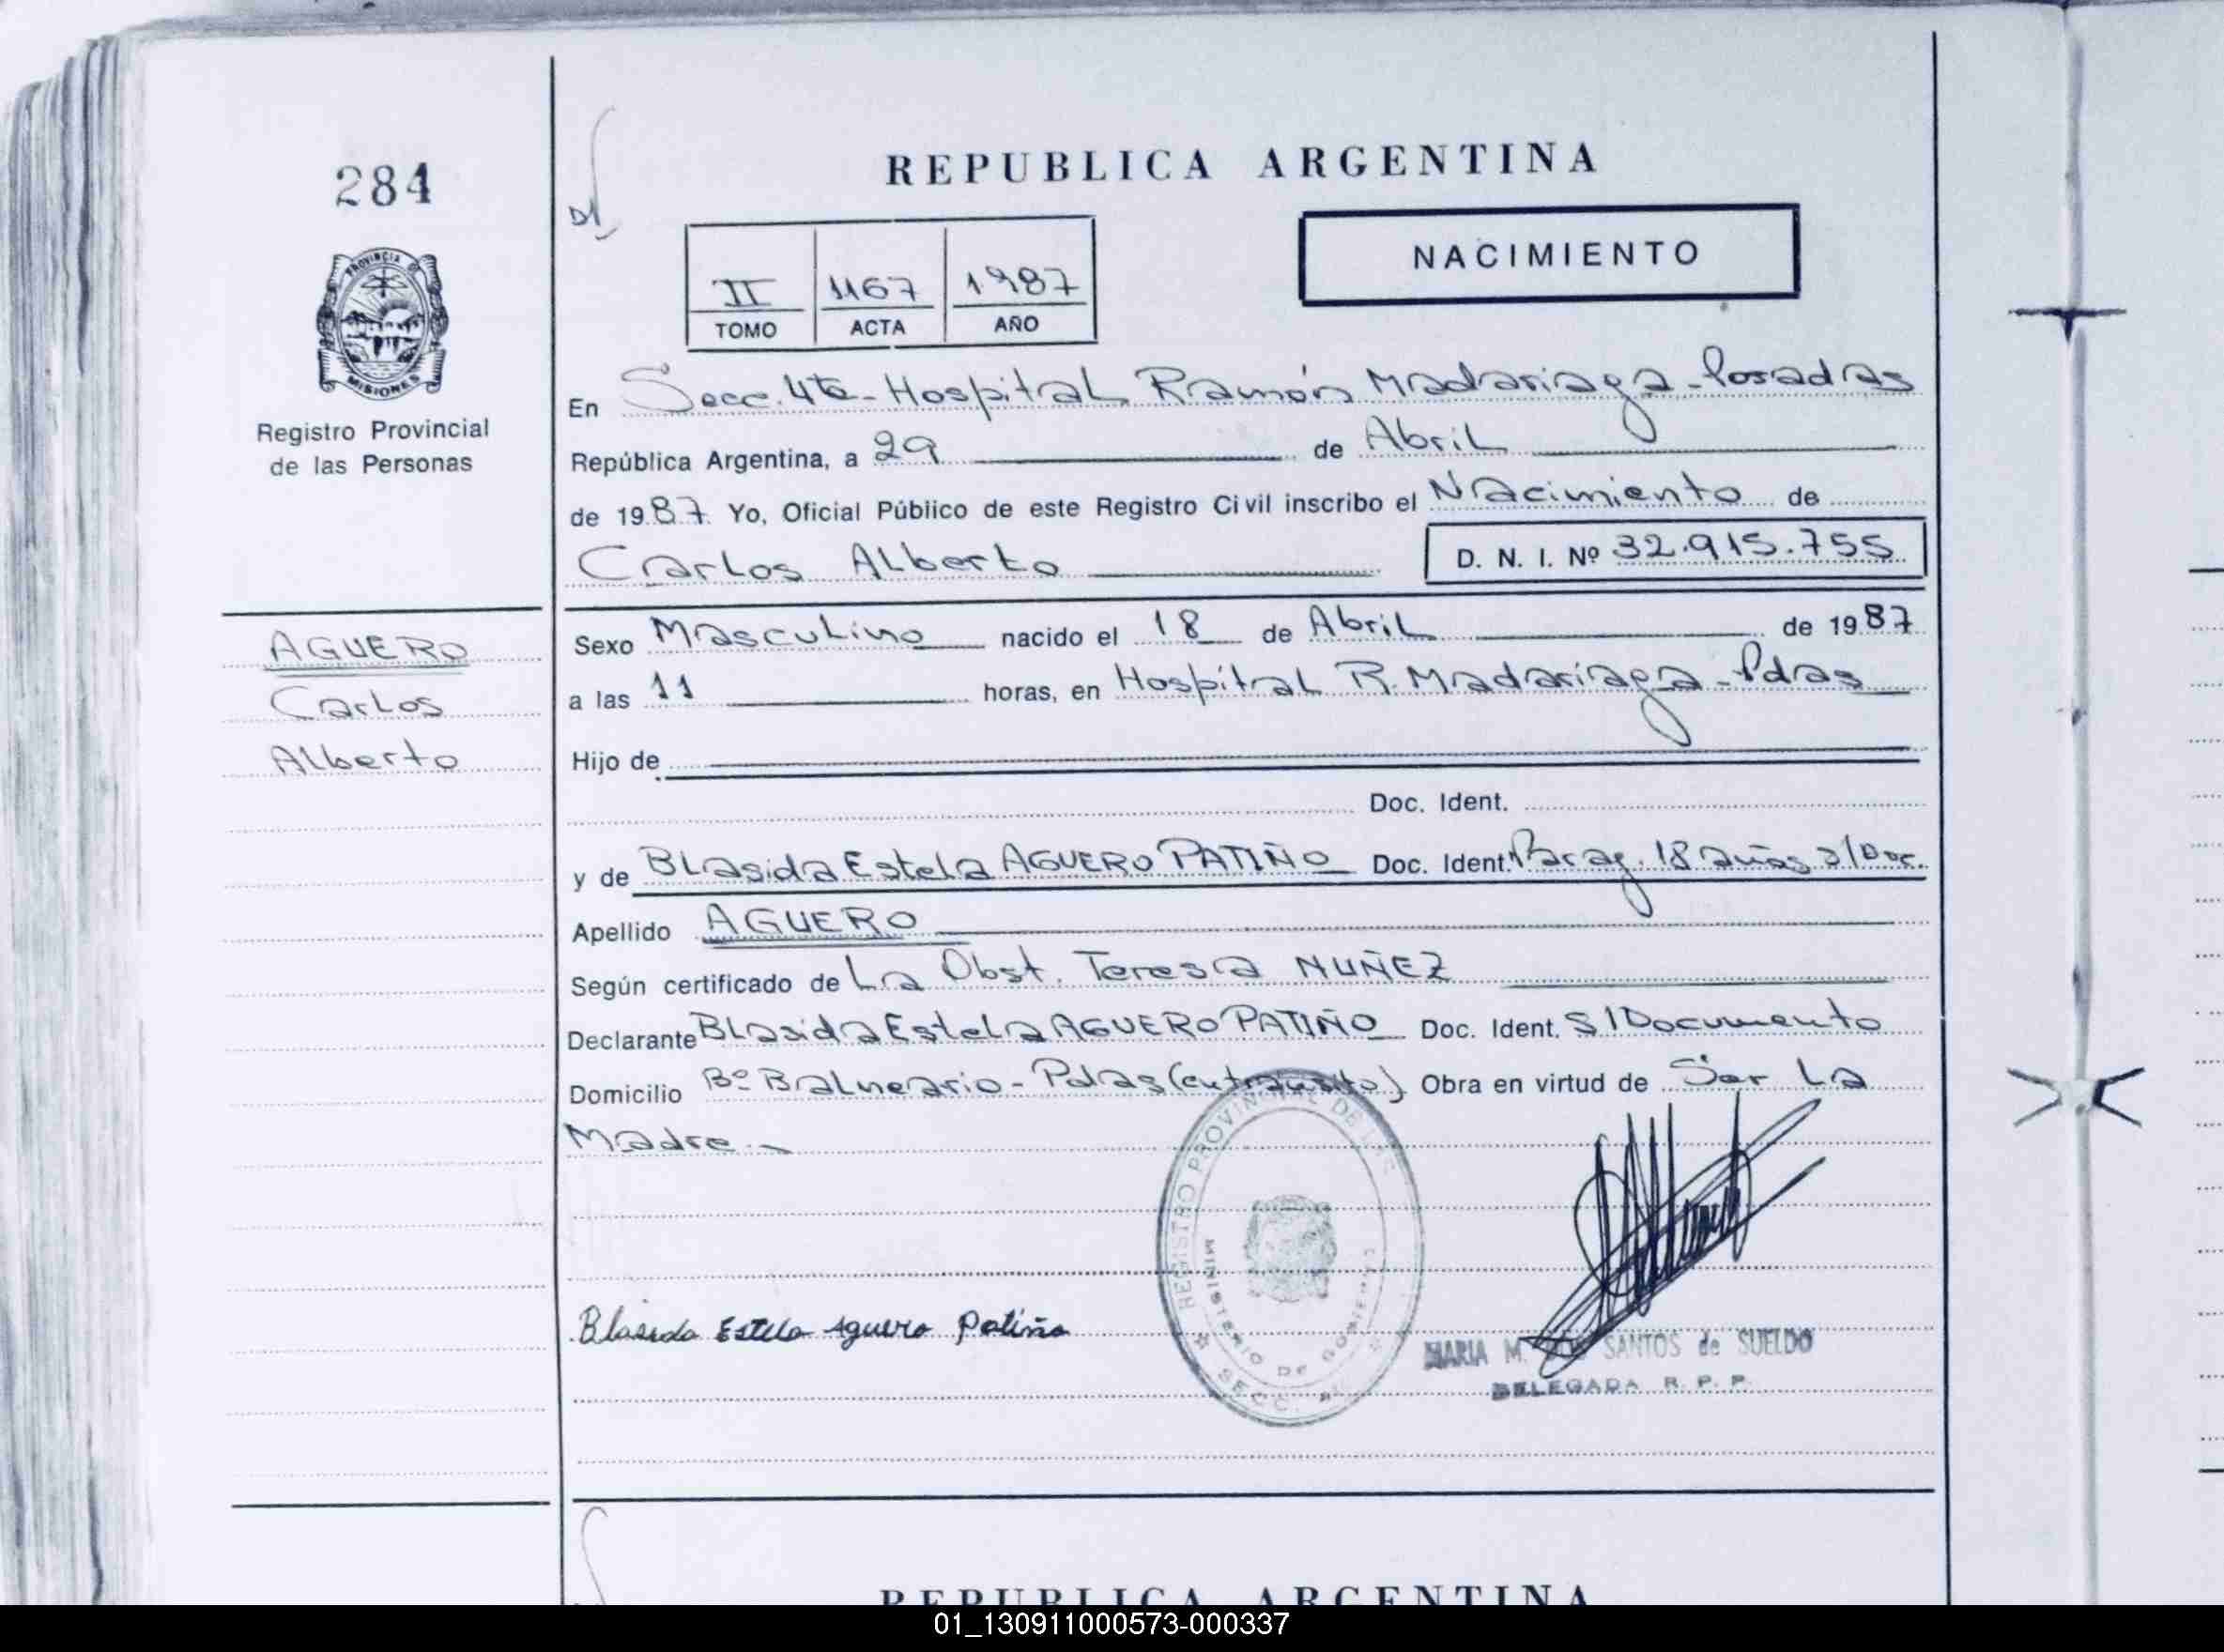 284
PROVINCIA D
MISIONES
Registro Provincial
de las Personas
AGUERO
Carlos
Alberto
REPUBLICA ARGENTINA
II 1167 1987
TOMO ACTA AÑO
NACIMIENTO
En Secc. 4ta - Hospital Ramón Madariaga - Posadas
República Argentina, a 29 de Abril
de 1987 Yo, Oficial Público de este Registro Civil inscribo el Nacimiento de
Carlos Alberto D. N. I. Nº 32.915.755
Sexo Masculino nacido el 18 de Abril de 1987
a las 11 horas, en Hospital R. Madariaga - Pdas
Hijo de
Doc. Ident.
y de Blasida Estela AGUERO PATIÑO Doc. Ident. Parag. 18 años s/Doc.
Apellido AGUERO
Según certificado de La Obst. Teresa NUÑEZ
Declarante Blasida Estela AGUERO PATIÑO Doc. Ident. S/Documento
Domicilio Bº Balneario - Pdas (en transito) Obra en virtud de Ser La
Madre
REGISTRO PROVINCIAL DE LAS
MINISTERIO DE GOBIERNO
SECC.
Blasida Estela Aguero Patiño
MARIA M. SANTOS de SUELDO
DELEGADA R. P. P.
REPUBLICA ARGENTINA
01_130911000573-000337